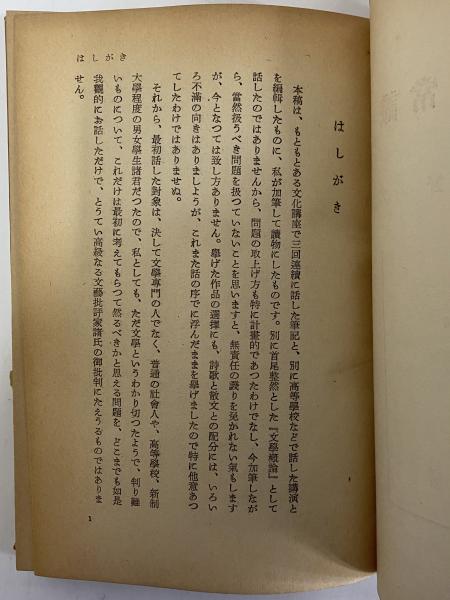 はしがき
はしがき
本稿は、もともとある文化講座で三回連續に話した筆記と、別に高等學校などで話した講演と
を編輯したものに、私が加筆して讀物にしたものです。別に首尾整然とした『文學概論』として
話したのではありませんから、問題の取上げ方も特に計畫的であつたわけでなし、今加筆しなが
ら、當然扱うべき問題を扱つていないことを思いますと、無責任の譏りを免かれない氣もします
が、今となつては致し方ありません。擧げた作品の選擇にも、詩歌と散文との配分には、いろい
ろ不滿の向きはありましようが、これまた話の序でに浮んだままを擧げましたので特に他意あつ
てしたわけではありませぬ。
それから、最初話した對象は、決して文學專門の人でなく、普通の社會人や、高等學校、新制
大學程度の男女學生諸君だつたので、私としても、ただ文學というわかり切つたようで、判り難
いものについて、これだけは最初に考えてもらつて然るべきかと思える問題を、どこまでも如是
我觀的にお話しただけで、とうてい高級なる文藝批評家諸氏の御批判にたえうるものではありま
せん。
1